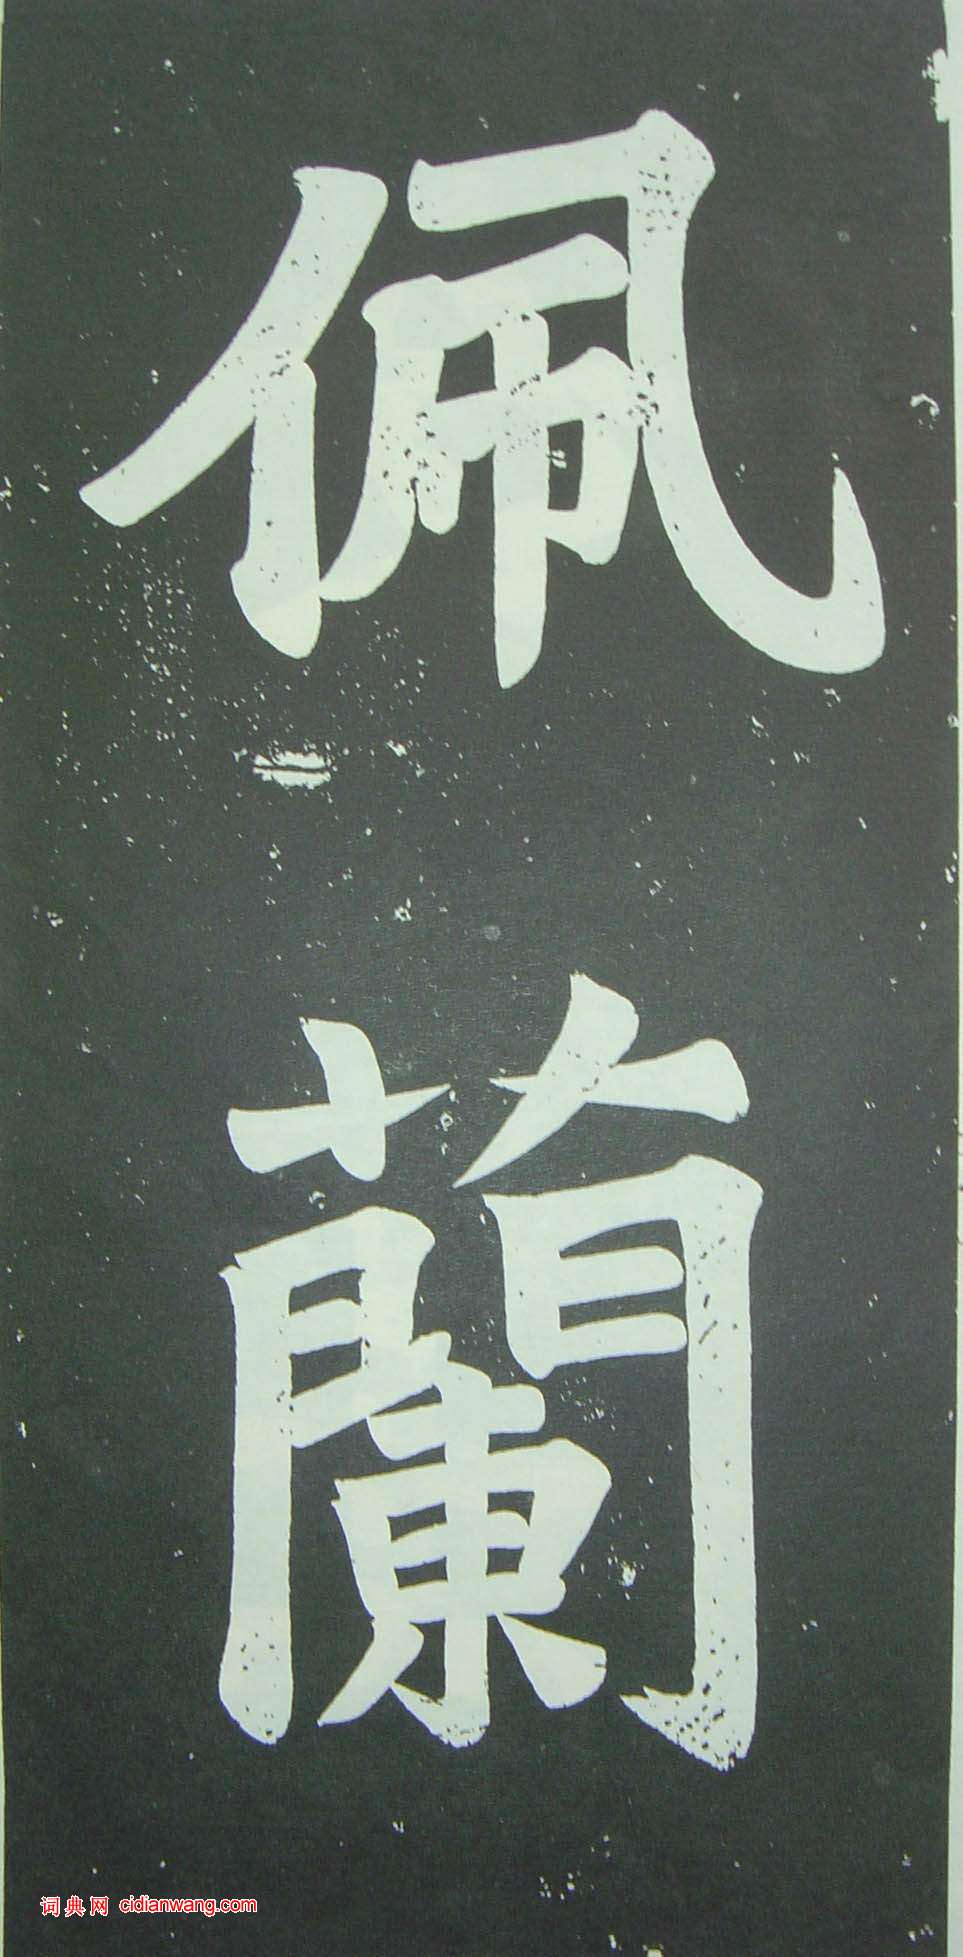 佩
蘭
词典网 cidianwang.com